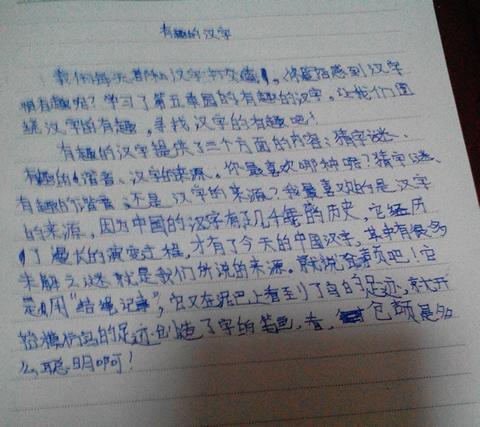 有趣的汉字
我们每天都和汉字打交道，你是否感到汉字
很有趣呢？学习了第五单园的有趣的汉字，让我们围
绕汉字的有趣，寻找汉字的有趣吧！
有趣的汉字提供了三个方面的内容：猜字谜、
有趣的谐音、汉字的来源。你最喜欢哪种呢？猜字谜、
有趣的谐音、还是汉字的来源？我最喜欢的是汉字
的来源，因为中国的汉字有几千年的历史，它经历
了漫长的演变过程，才有了今天的中国汉字，其中有很多
未解之谜就是我们所说的来源。就说仓颉吧！它
是用“结绳记事”，它又在泥巴上看到了鸟的足迹，就开
始模仿鸟的足迹创造了字的笔色，看，仓颉是多
么聪明啊！